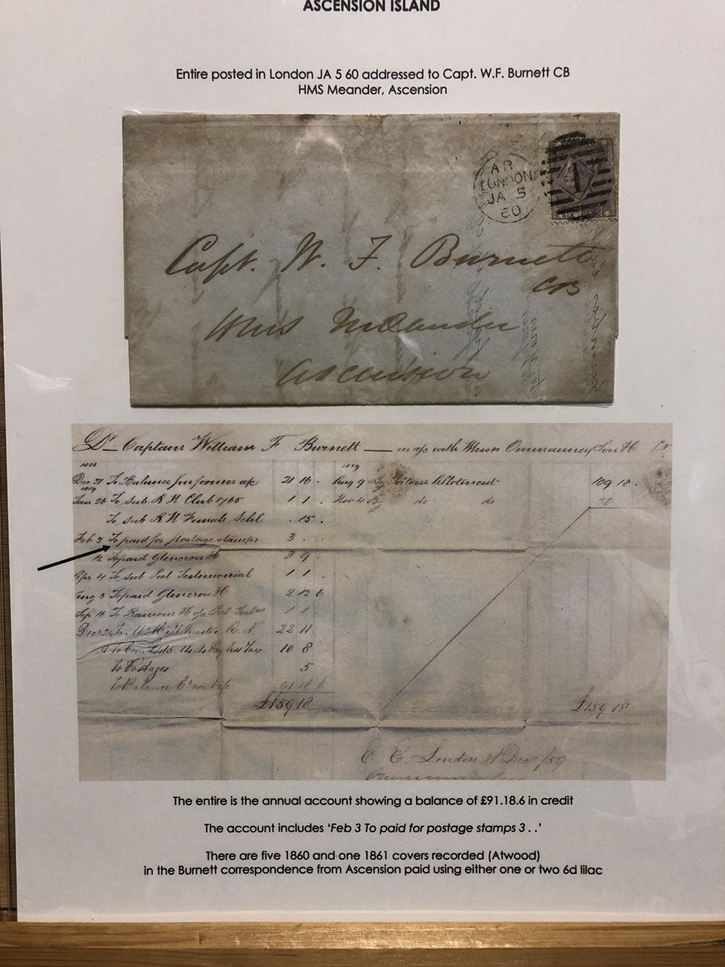 ASCENSION ISLAND
Entire posted in London JA 5 60 addressed to Capt. W.F. Burnett CB
HMS Meander, Ascension
AR
LONDON
JA 5
60
1
SIX PENCE
Capt. W. F. Burnett
CB
HMS Meander
Ascension
Dr Captain William F Burnett in a/c with Messrs Ommanney Son & Co Cr
Dec 31 To Balance fm former a/c 21 16 . Aug 9 By Allotment 109 18 .
Jan 20 To sub R.N. Club 1 1 . Nov 4 By do do
To sub R N Female Schl . 15 .
Feb 3 To paid for postage stamps 3 .
12 To paid Glencross 3 9 .
Apr 4 To sub Testimonial 1 1
Aug 3 To paid Glencross 2 12 6
Sep 1 1
Dec 22 11
10 8
To Postages 5
To Balance Cr new a/c 91 18 6
£159 18 £159 18
E E London 31 Decr /59
The entire is the annual account showing a balance of £91.18.6 in credit
The account includes ‘Feb 3 To paid for postage stamps 3 . .’
There are five 1860 and one 1861 covers recorded (Atwood)
in the Burnett correspondence from Ascension paid using either one or two 6d lilac